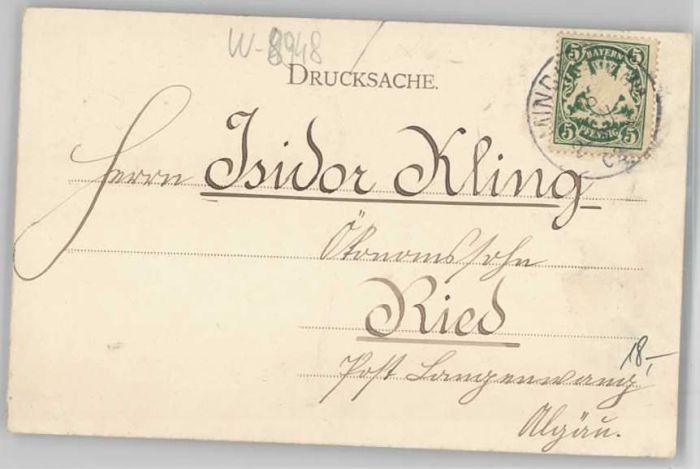 W-8948
DRUCKSACHE.
5 BAYERN 5
5 PFENNIG 5
Herrn Isidor Kling
Ökonomssohn
Ried
18,-
Post Langenwang,
Algäu.